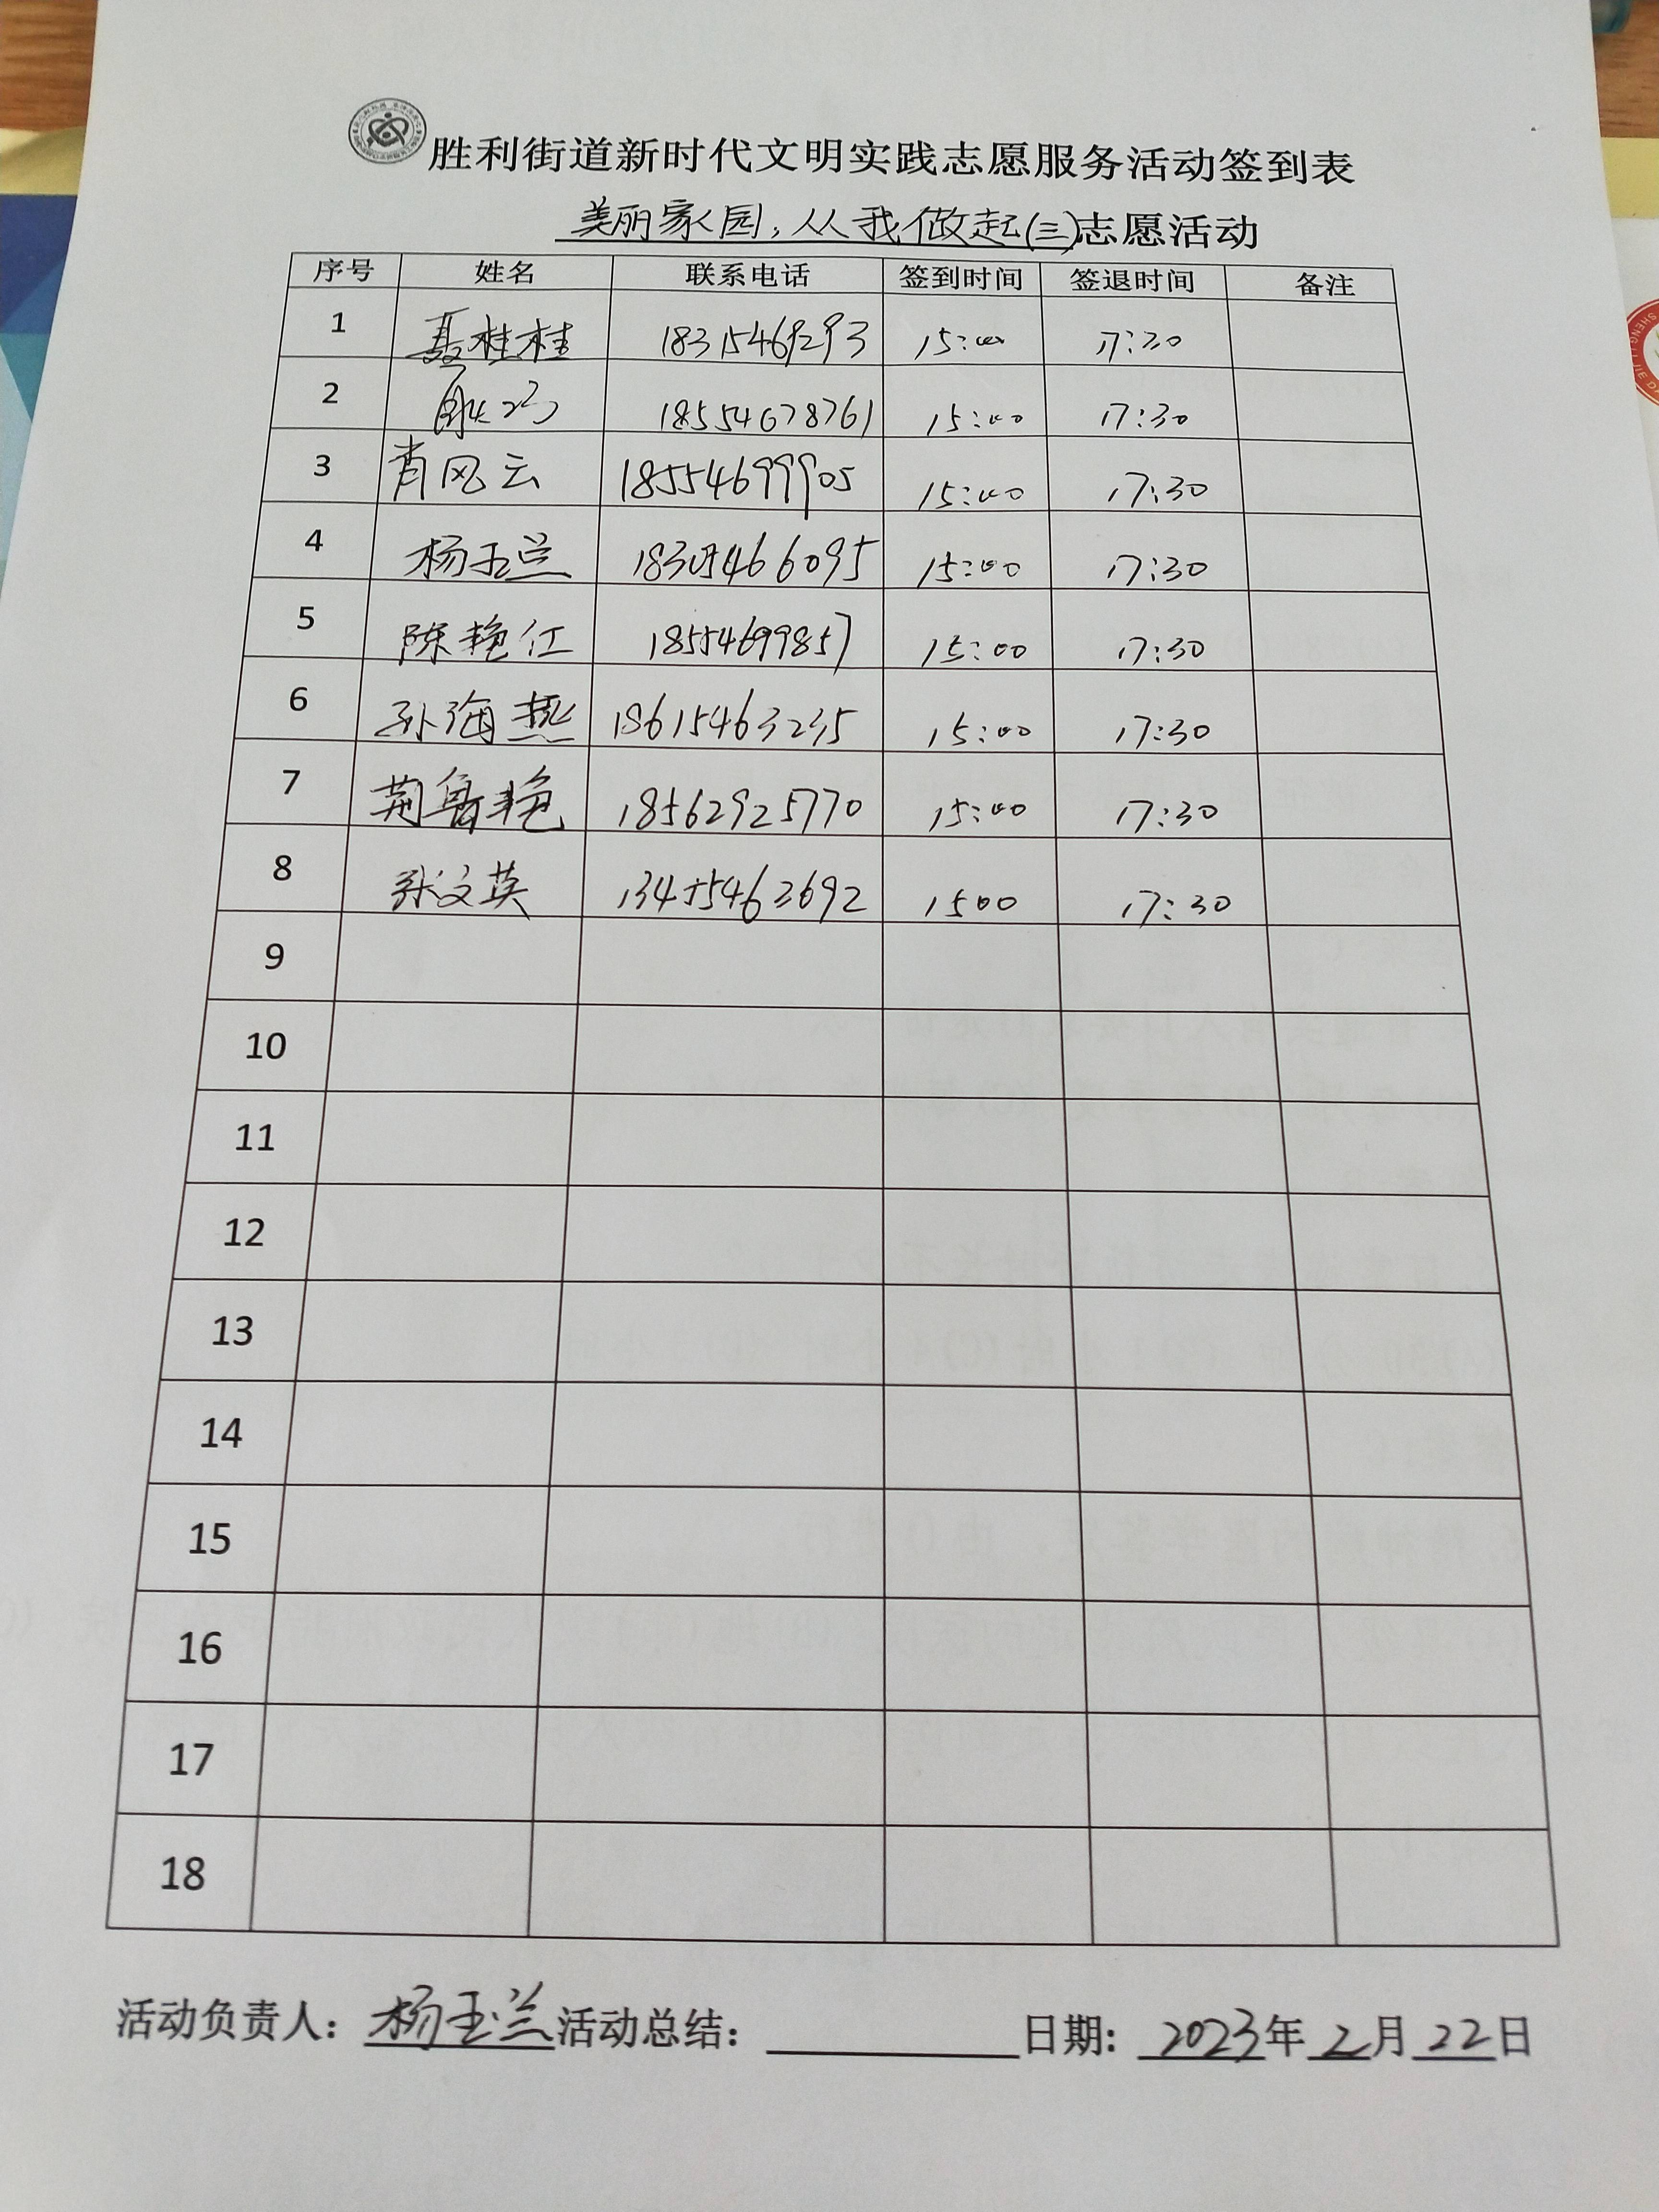 胜利街道新时代文明实践志愿服务活动签到表
美丽家园,从我做起(三)志愿活动
序号 姓名 联系电话 签到时间 签退时间 备注
1 聂桂桂 15:00 17:30
2 18554678761 15:00 17:30
3 肖风云 18554699905 15:00 17:30
4 杨玉兰 15:00 17:30
5 陈艳红 18554699857 15:00 17:30
6 孙海燕 18615463235 15:00 17:30
7 荆鲁艳 18562925770 15:00 17:30
8 张文英 13455463692 1500 17:30
9
10
11
12
13
14
15
16
17
18
活动负责人: 杨玉兰 活动总结: 日期: 2023年2月22日